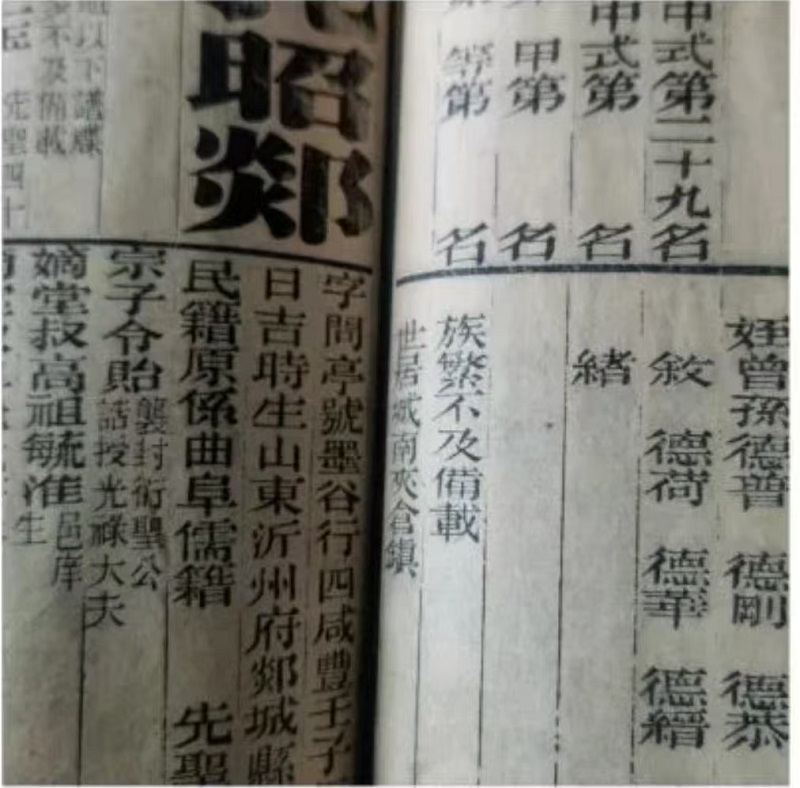 中式第二十九名
中式第 名
甲第 名
等第 名
姪曾孫德普 德剛 德恭
敘 德荷 德華 德縉
緒
族繁不及備載
世居城南夾倉鎮
昭郯
字問亭號墨谷行四咸豐壬子
日吉時生山東沂州府郯城縣
民籍原係曲阜儒籍 先聖
以下譜牒
不及備載
先聖四十
宗子令貽襲封衍聖公
誥授光祿大夫
嫡堂叔高祖毓淮邑庠
生